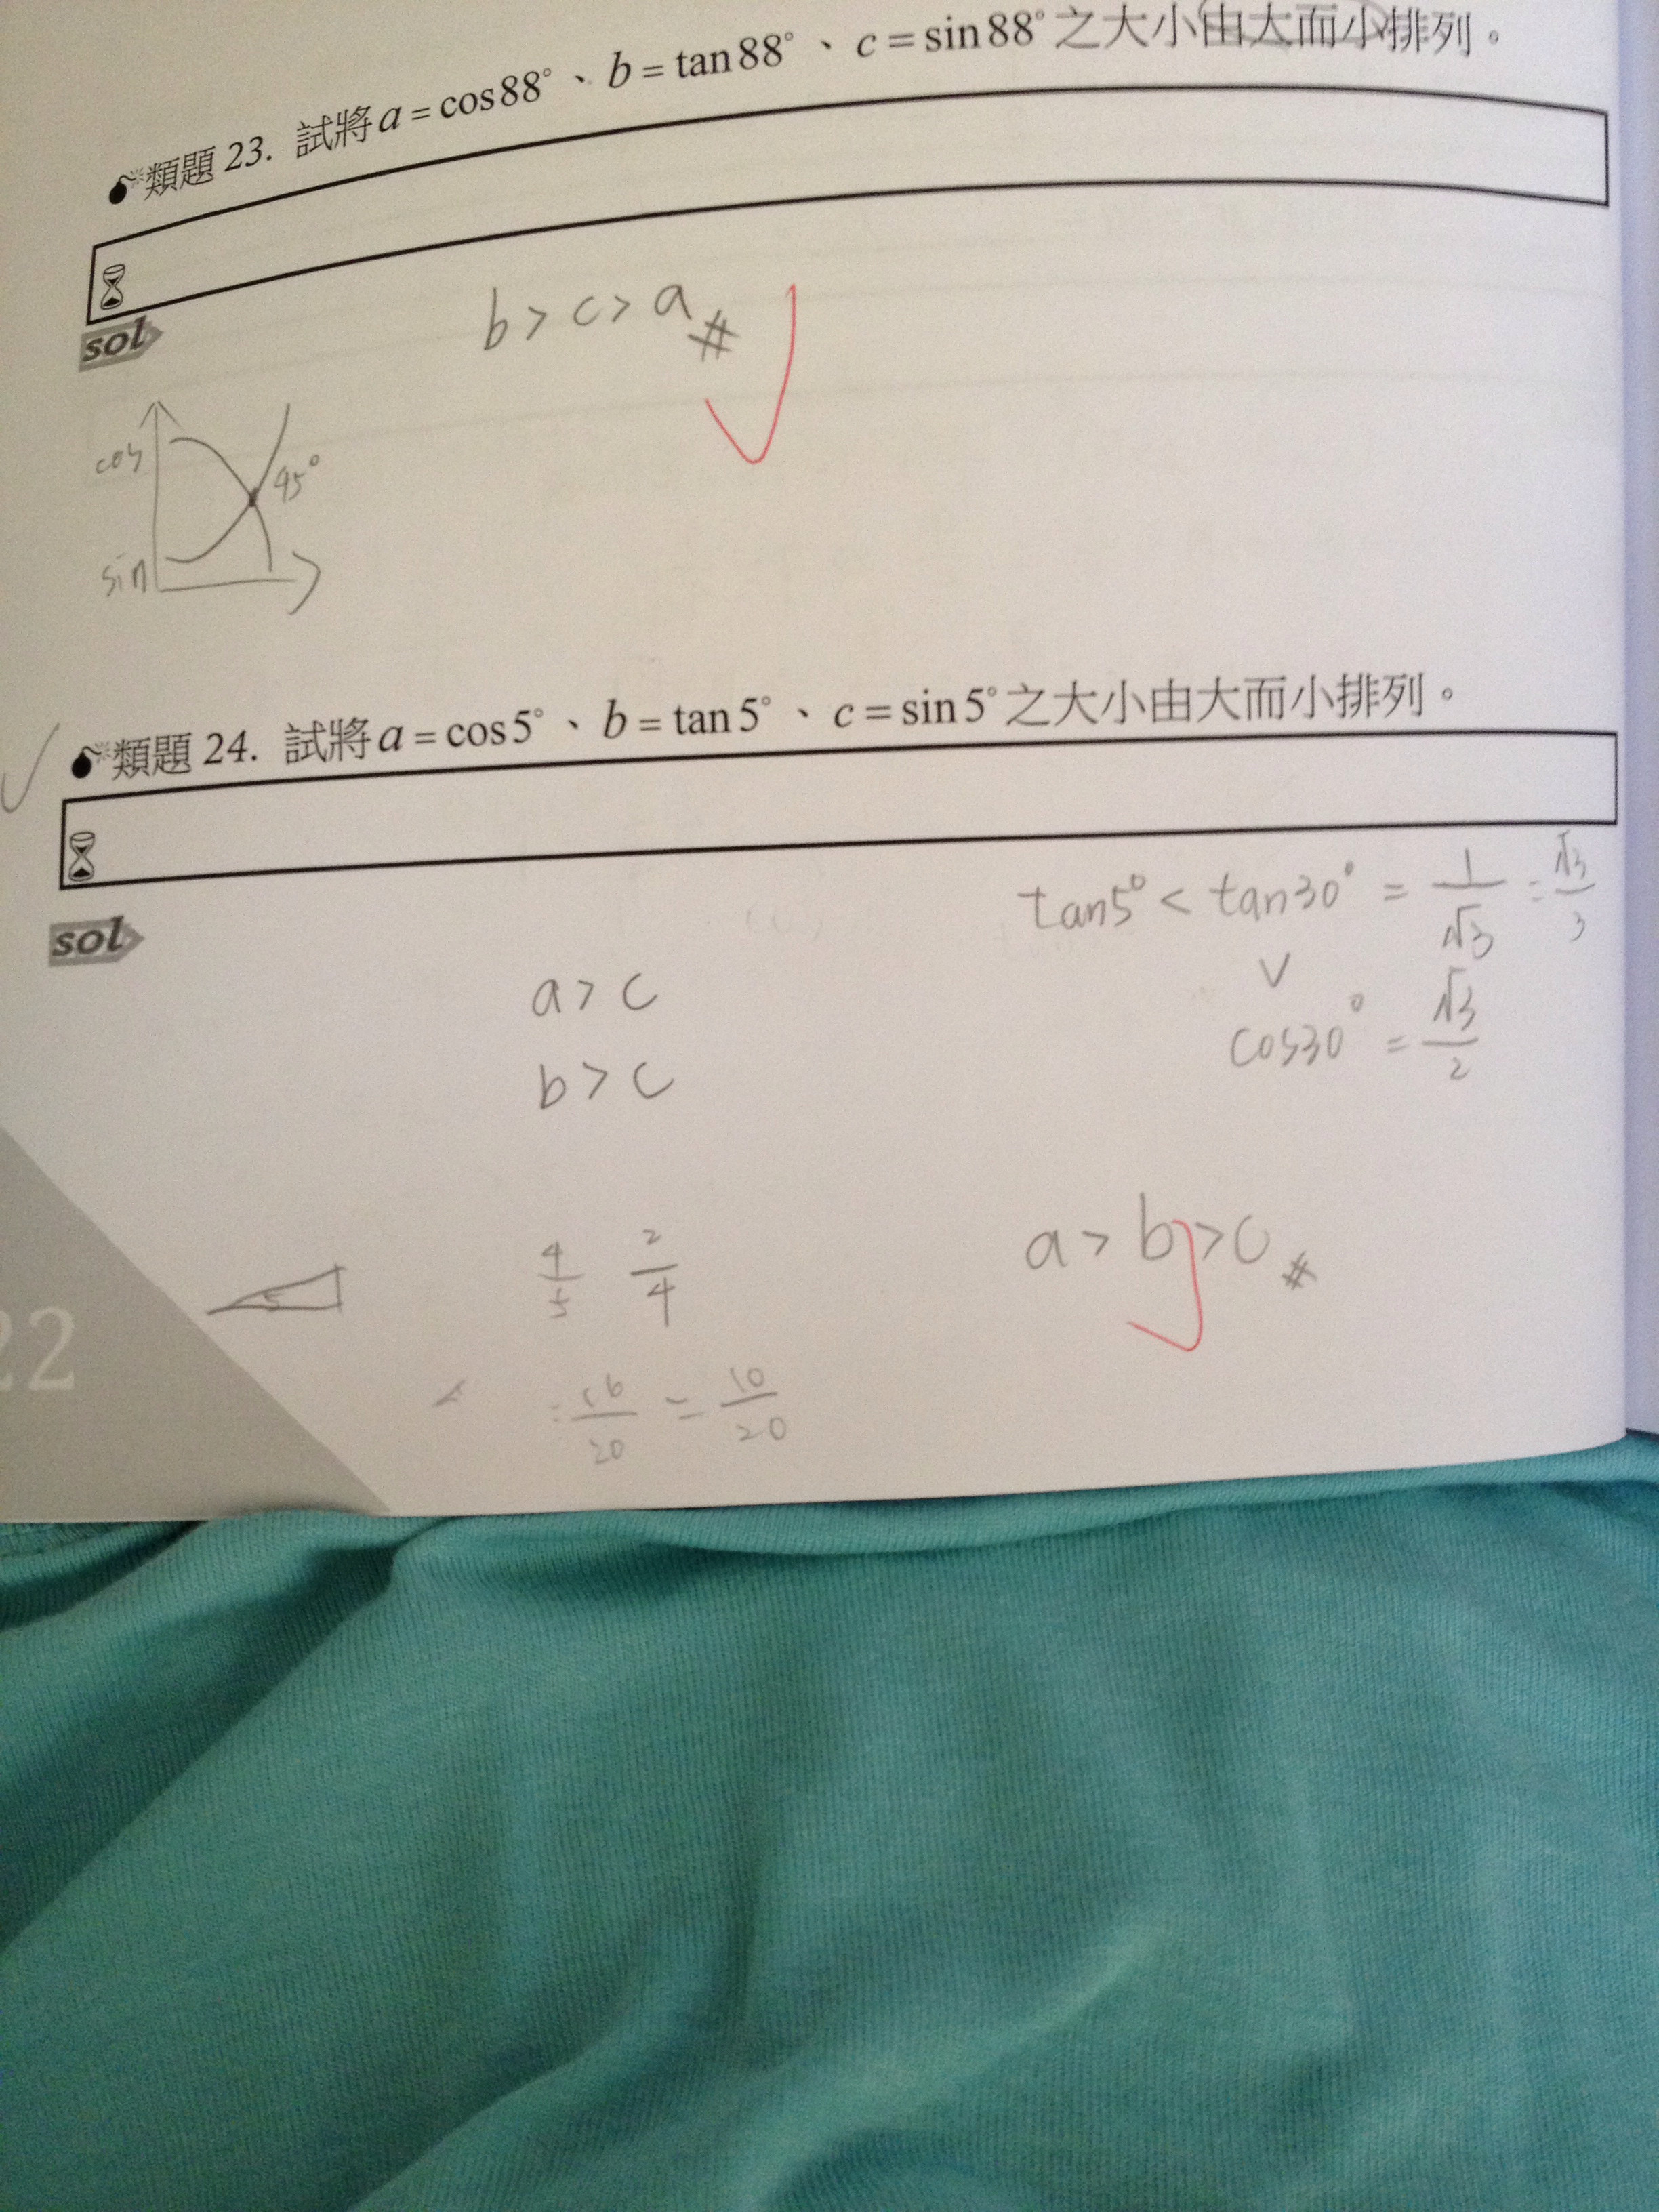 類題 23. 試將 a = cos88°、b = tan88°、c = sin88° 之大小由大而小排列。
sol
b > c > a #
cos
45°
sin
類題 24. 試將 a = cos5°、b = tan5°、c = sin5° 之大小由大而小排列。
sol
tan5° < tan30° = 1/√3 = √3/3
∨
cos30° = √3/2
a > c
b > c
a > b > c #
5
4/5 2/4
= 16/20 = 10/20
22